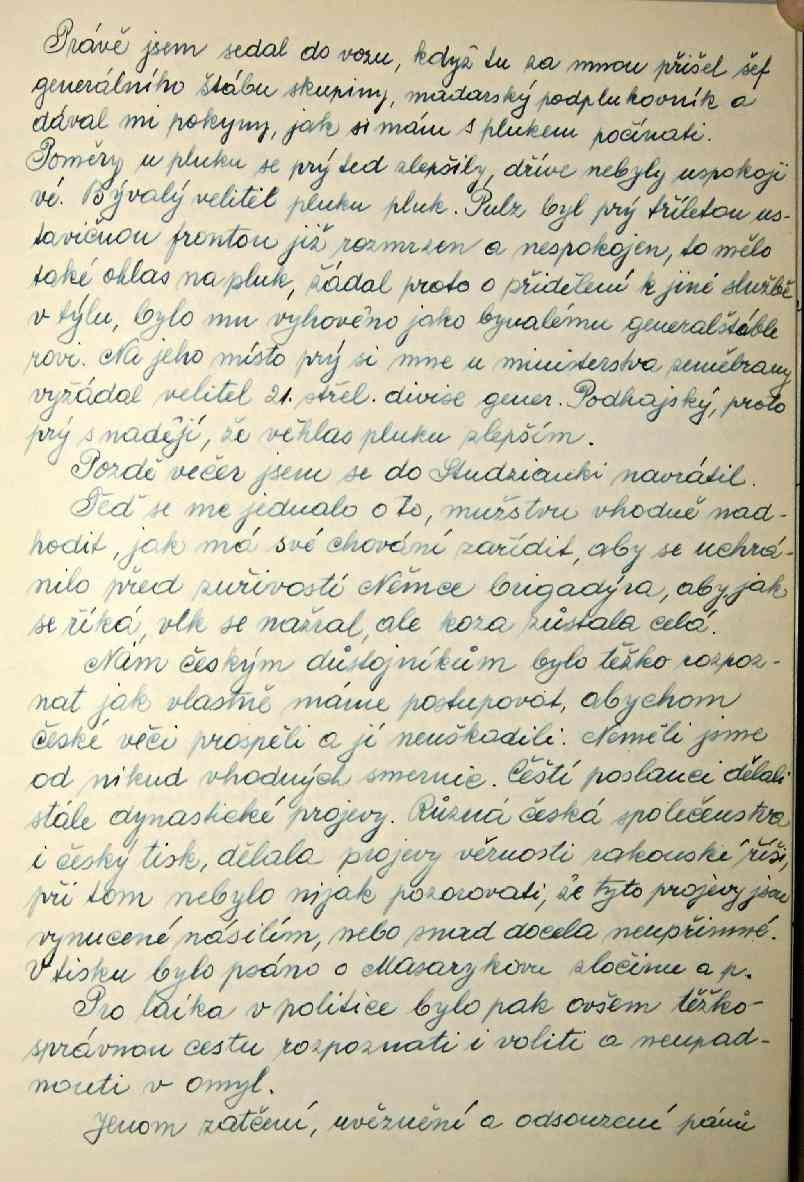 Právě jsem sedal do vozu, když tu za mnou přišel šéf
generálního štábu skupiny, maďarský podplukovník a
dával mi pokyny, jak si mám s plukem počínati.
Poměry u pluku se prý teď zlepšily, dříve nebyly uspokoji
vé. Bývalý velitel pluku pluk. Pulz byl prý tříletou us-
tavičnou frontou již rozmrzen a nespokojen, to mělo
také ohlas na pluk, žádal proto o přidělení k jiné službě
v týlu, bylo mu vyhověno jako bývalému generalštáble
rovi. Na jeho místo prý si mne u ministerstva zeměbrany
vyžádal velitel 21. střel. divise gener. Podhajský, proto
prý s nadějí, že věhlas pluku zlepším.
Pozdě večer jsem se do Studzianki navrátil.
Teď se me jednalo o to, mužstvu vhodně nad-
hodit, jak má své chování zařídit, aby se uchrá-
nilo před zuřivostí Němce brigadýra, aby, jak
se říká, vlk se nažral, ale koza zůstala celá.
Nám českým důstojníkům bylo těžko rozpoz-
nat jak vlastně máme postupovat, abychom
české věci prospěli a jí neuškodili. Neměli jsme
od nikud vhodných smernic. Čeští poslanci dělali
stále dynastické projevy. Různá česká společenstva
i český tisk, dělala projevy věrnosti rakouské říši,
při tom nebylo nijak pozorovati, že tyto projevy jsou
vynucené násilím, nebo snad docela neupřimné.
V tisku bylo psáno o Masarykovu zločinu a p.
Pro laika v politice bylo pak ovšem těžko
správnou cestu rozpoznati i voliti a neupad-
nouti v omyl.
Jenom zatčení, uvěznění a odsouzení pánů